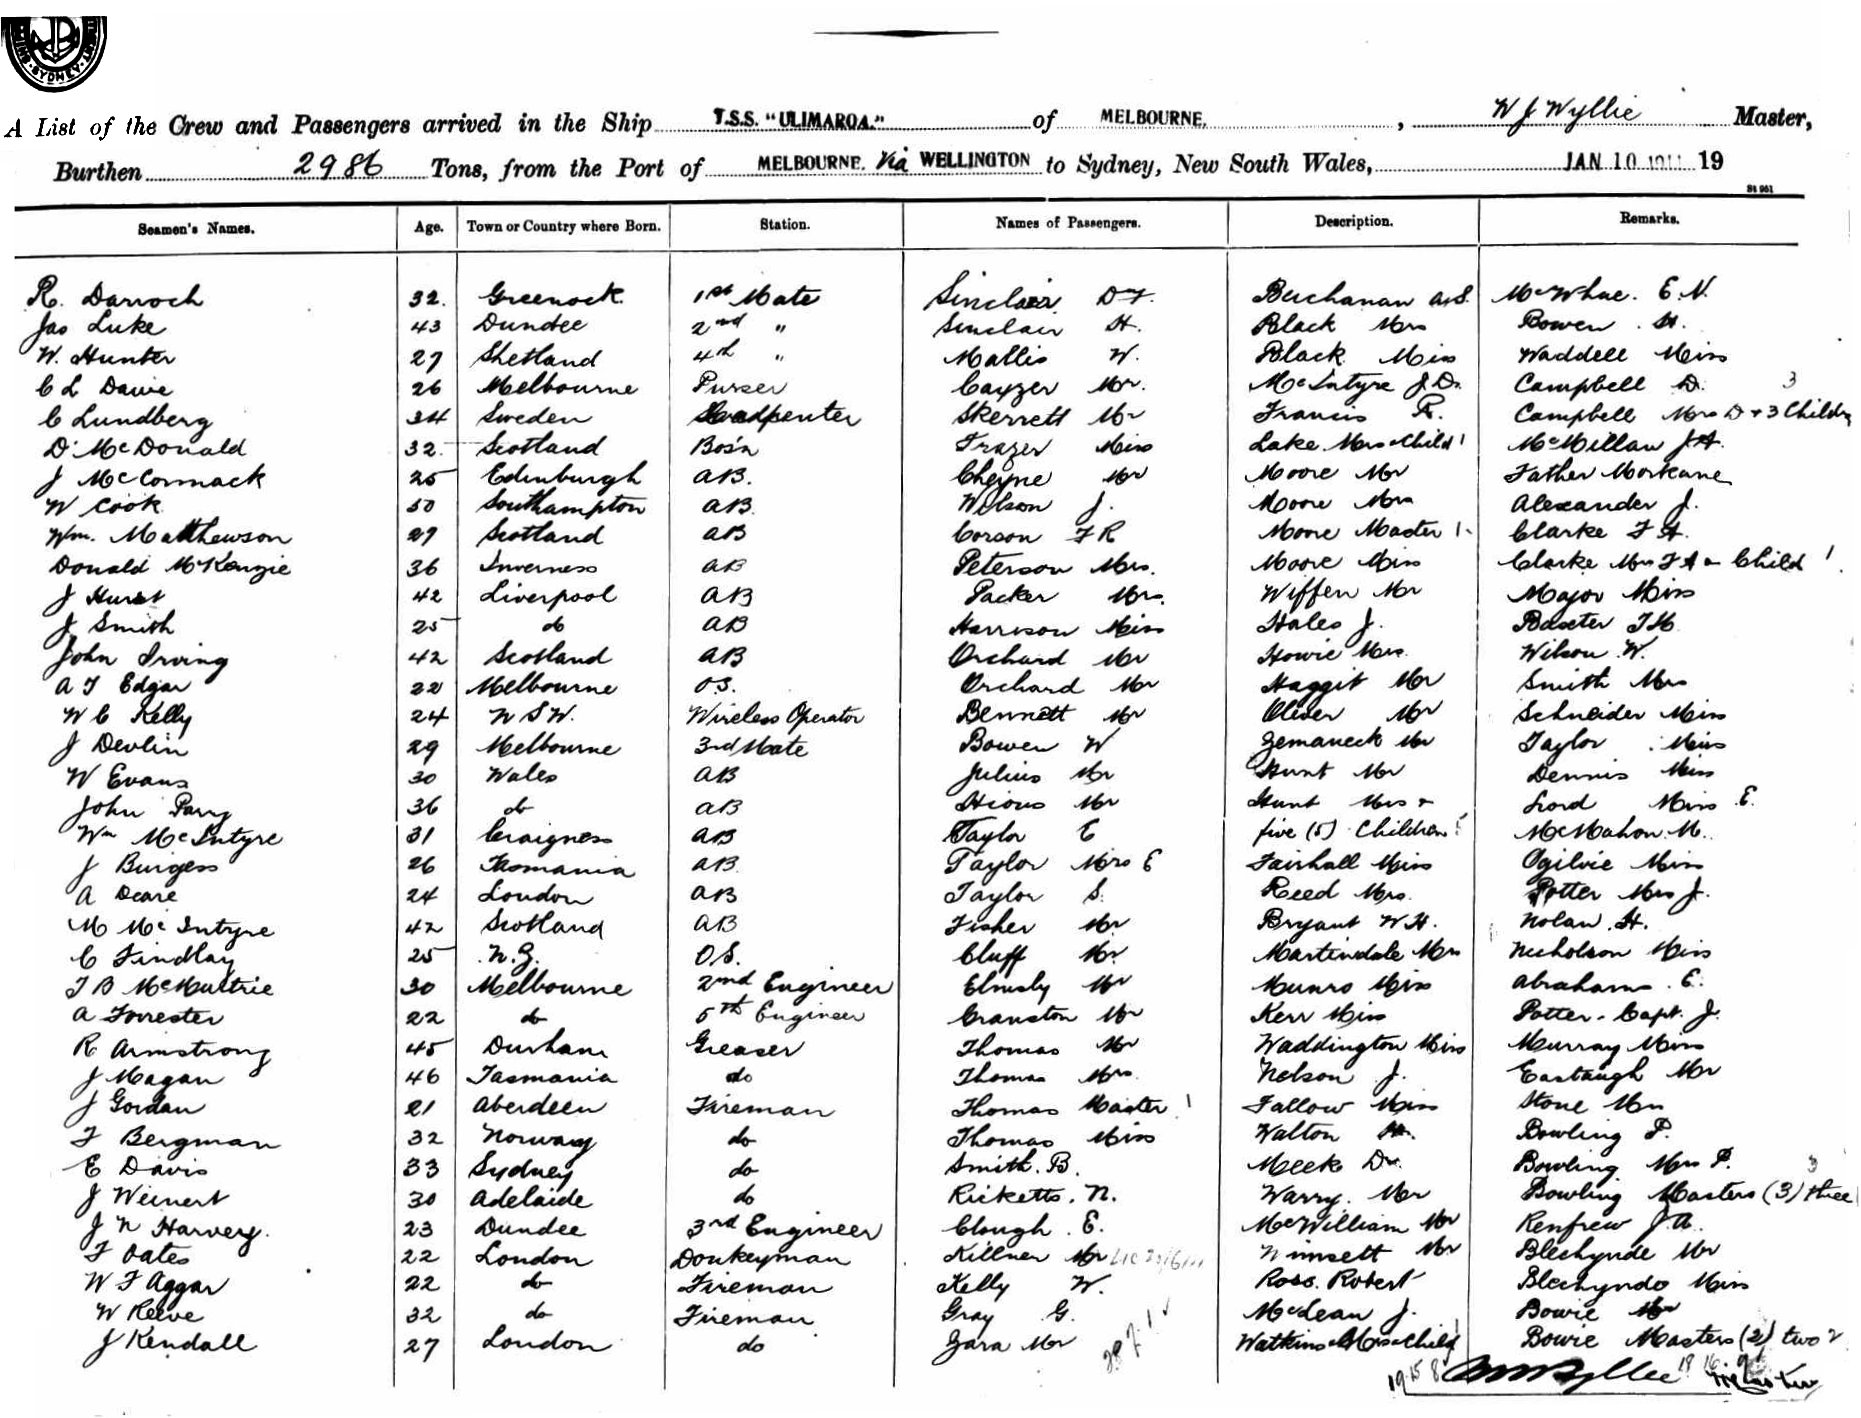 SYDNEY
A List of the Crew and Passengers arrived in the Ship T.S.S. "ULIMAROA." of MELBOURNE, , W J Wyllie Master,
Burthen 2986 Tons, from the Port of MELBOURNE. Via WELLINGTON to Sydney, New South Wales, JAN 10 1911 19
St 951
Seamen's Names. Age. Town or Country where Born. Station. Names of Passengers. Description. Remarks.
R. Darroch 32. Greenock 1st Mate Sinclair Dr. Buchanan A.S. McWhae. E.N.
Jas Luke 43 Dundee 2nd " Sinclair H. Black Mrs Bowen H.
W. Hunter 27 Shetland 4th " Mallis W. Black Miss Waddell Miss
C L Dawe 26 Melbourne Purser Cayzer Mr. McIntyre J. Dr. Campbell D. 3
C Lundberg 34 Sweden Skerrett Mr Francis R. Campbell Mrs D + 3 Childrn
D. McDonald 32. Scotland Bos'n Frazer Miss Lake Mrs + Child 1 McMillan J A.
J McCormack 25 Edinburgh AB. Cheyne Mr Moore Mr Father Morkane
W Cook 50 Southampton AB. Wilson J. Moore Mrs Alexander J.
Wm. Matthewson 27 Scotland AB Corson F R Moore Master 1 Clarke F A.
Donald McKenzie 36 Inverness AB Peterson Mrs. Moore Miss Clarke Mrs F A + Child 1
J Hurst 42 Liverpool AB Packer Mrs. Wiffen Mr Major Miss
J Smith 25 do AB Harrison Miss Hales J. Baxter T H.
John Irving 42 Scotland AB Orchard Mr Howie Mrs. Wilson W.
A J Edgar 22 Melbourne O.S. Orchard Mr Haggit Mr Smith Mrs
W C Kelly 24 N S W. Wireless Operator Bennett Mr Oliver Mr Schneider Miss
J Devlin 29 Melbourne 3rd Mate Bowen W Zemaneck Mr Taylor Miss
W Evans 30 Wales AB Julius Mr Hunt Mr Dennis Miss
John Parry 36 do AB Hions Mr Hunt Mrs + Lord Miss E.
Wm McIntyre 31 Craigness AB Taylor E five (5) Children 5 McMahon. M.
J Burgess 26 Tasmania AB. Taylor Mrs E Fairhall Miss Ogilvie Miss
A Deare 24 London AB Taylor S. Reed Mrs. Potter Mrs J.
M McIntyre 42 Scotland AB Fisher Mr Bryant W. H. Nolan. H.
C Findlay 25 N.Z. O.S. Cluff Mr Martindale Mrs Nicholson Miss
T B McMurtrie 30 Melbourne 2nd Engineer Elmsly Mr Munro Miss Abrahams. E.
A Forrester 22 do 5th Engineer Cranston Mr Kerr Miss Potter - Capt. J.
R Armstrong 45 Durham Greaser Thomas Mr Waddington Miss Murray Miss
J Magan 46 Tasmania do Thomas Mrs. Nelson J. Eastaugh Mr
J Gordan 21 Aberdeen Fireman Thomas Master 1 Fallow Miss Stone Mrs
F Bergman 32 Norway do Thomas Miss Walton Bowling P.
E Davis 33 Sydney do Smith. B. Meek Dr. Bowling Mrs P. 3
J Weinert 30 Adelaide do Ricketts. N. Warry. Mr Bowling Masters (3) three
J N Harvey. 23 Dundee 3rd Engineer Clough. E. McWilliam Mr Renfrew J. A.
F Oates 22 London Donkeyman Killner Mr Wimsett Mr Blechynde Mr
W F Aggar 22 do Fireman Kelly W. Ross. Robert Blechyndo Miss
W Reeve 32 do Fireman Gray G. McLean J. Bowie
J Kendall 27 London do Zara Mr Watkins Mrs + Child 1 Bowie Masters (2) two 2
19 15 8 W J Wyllie 18 16 9 Master